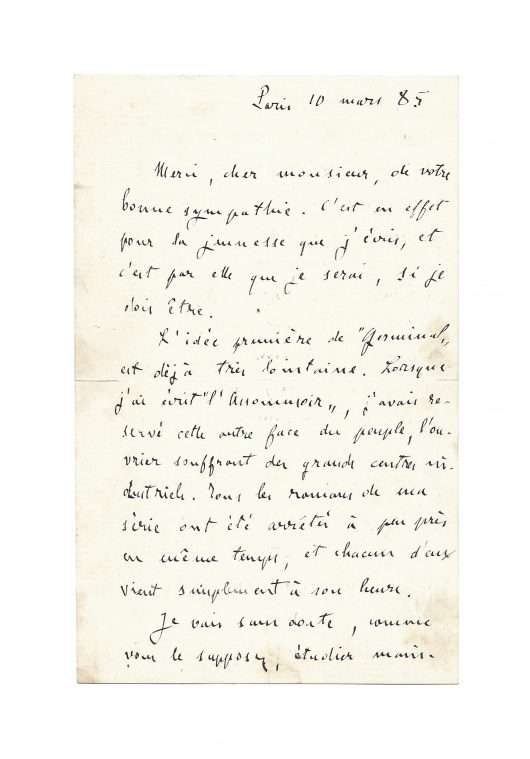 Paris 10 mars 85
Merci, cher monsieur, de votre
bonne sympathie. C'est en effet
pour la jeunesse que j'écris, et
c'est par elle que je serai, si je
dois être.
L'idée première de "Germinal"
est déjà très lointaine. Lorsque
j'ai écrit "l'Assommoir", j'avais ré-
servé cette autre face du peuple, l'ou-
vrier souffrant des grands centres in-
dustriels. Tous les romans de ma
série ont été arrêtés à peu près
en même temps, et chacun d'eux
vient simplement à son heure.
Je vais sans doute, comme
vous le supposez, étudier main-